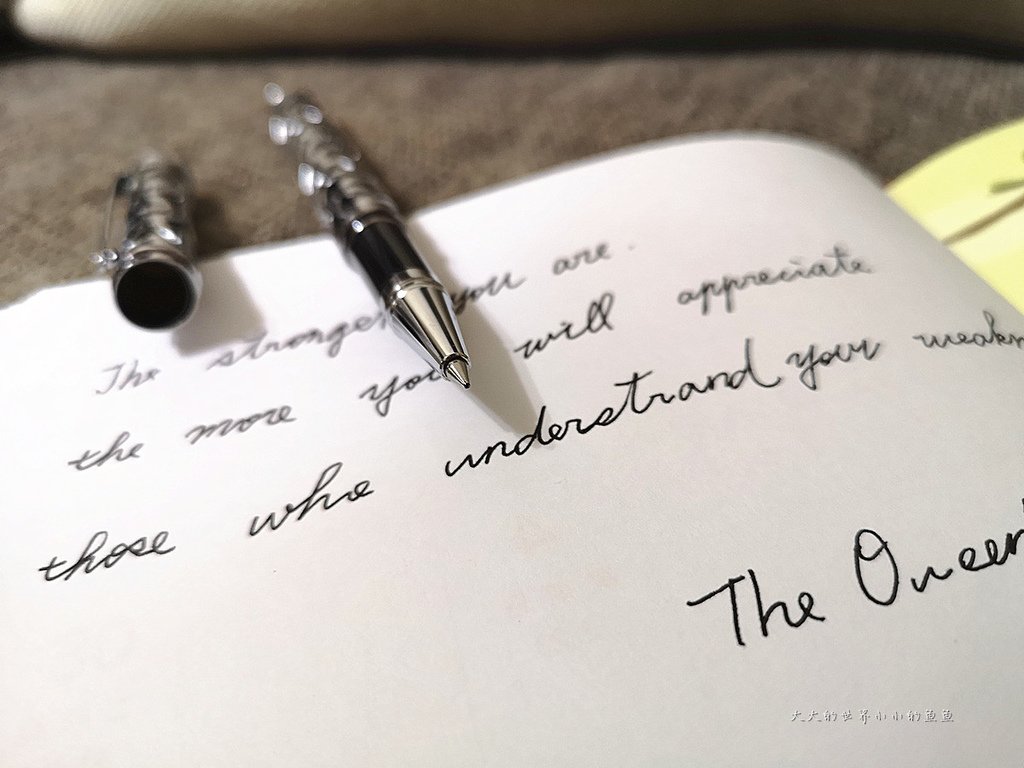 The stronger you are.
the more you will appreciate
those who understrand your weakn
The Queen
大大的世界小小的鱼鱼